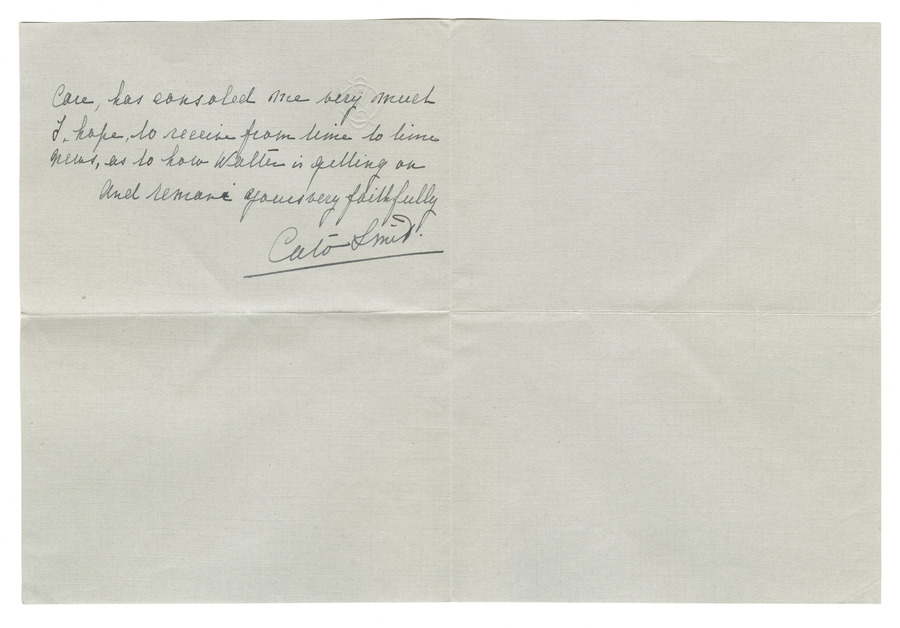 Care, has consoled me very much
I, hope, to receive from time to time
news, as to how Walter is getting on
And remain yours very faithfully
Cato Smid.